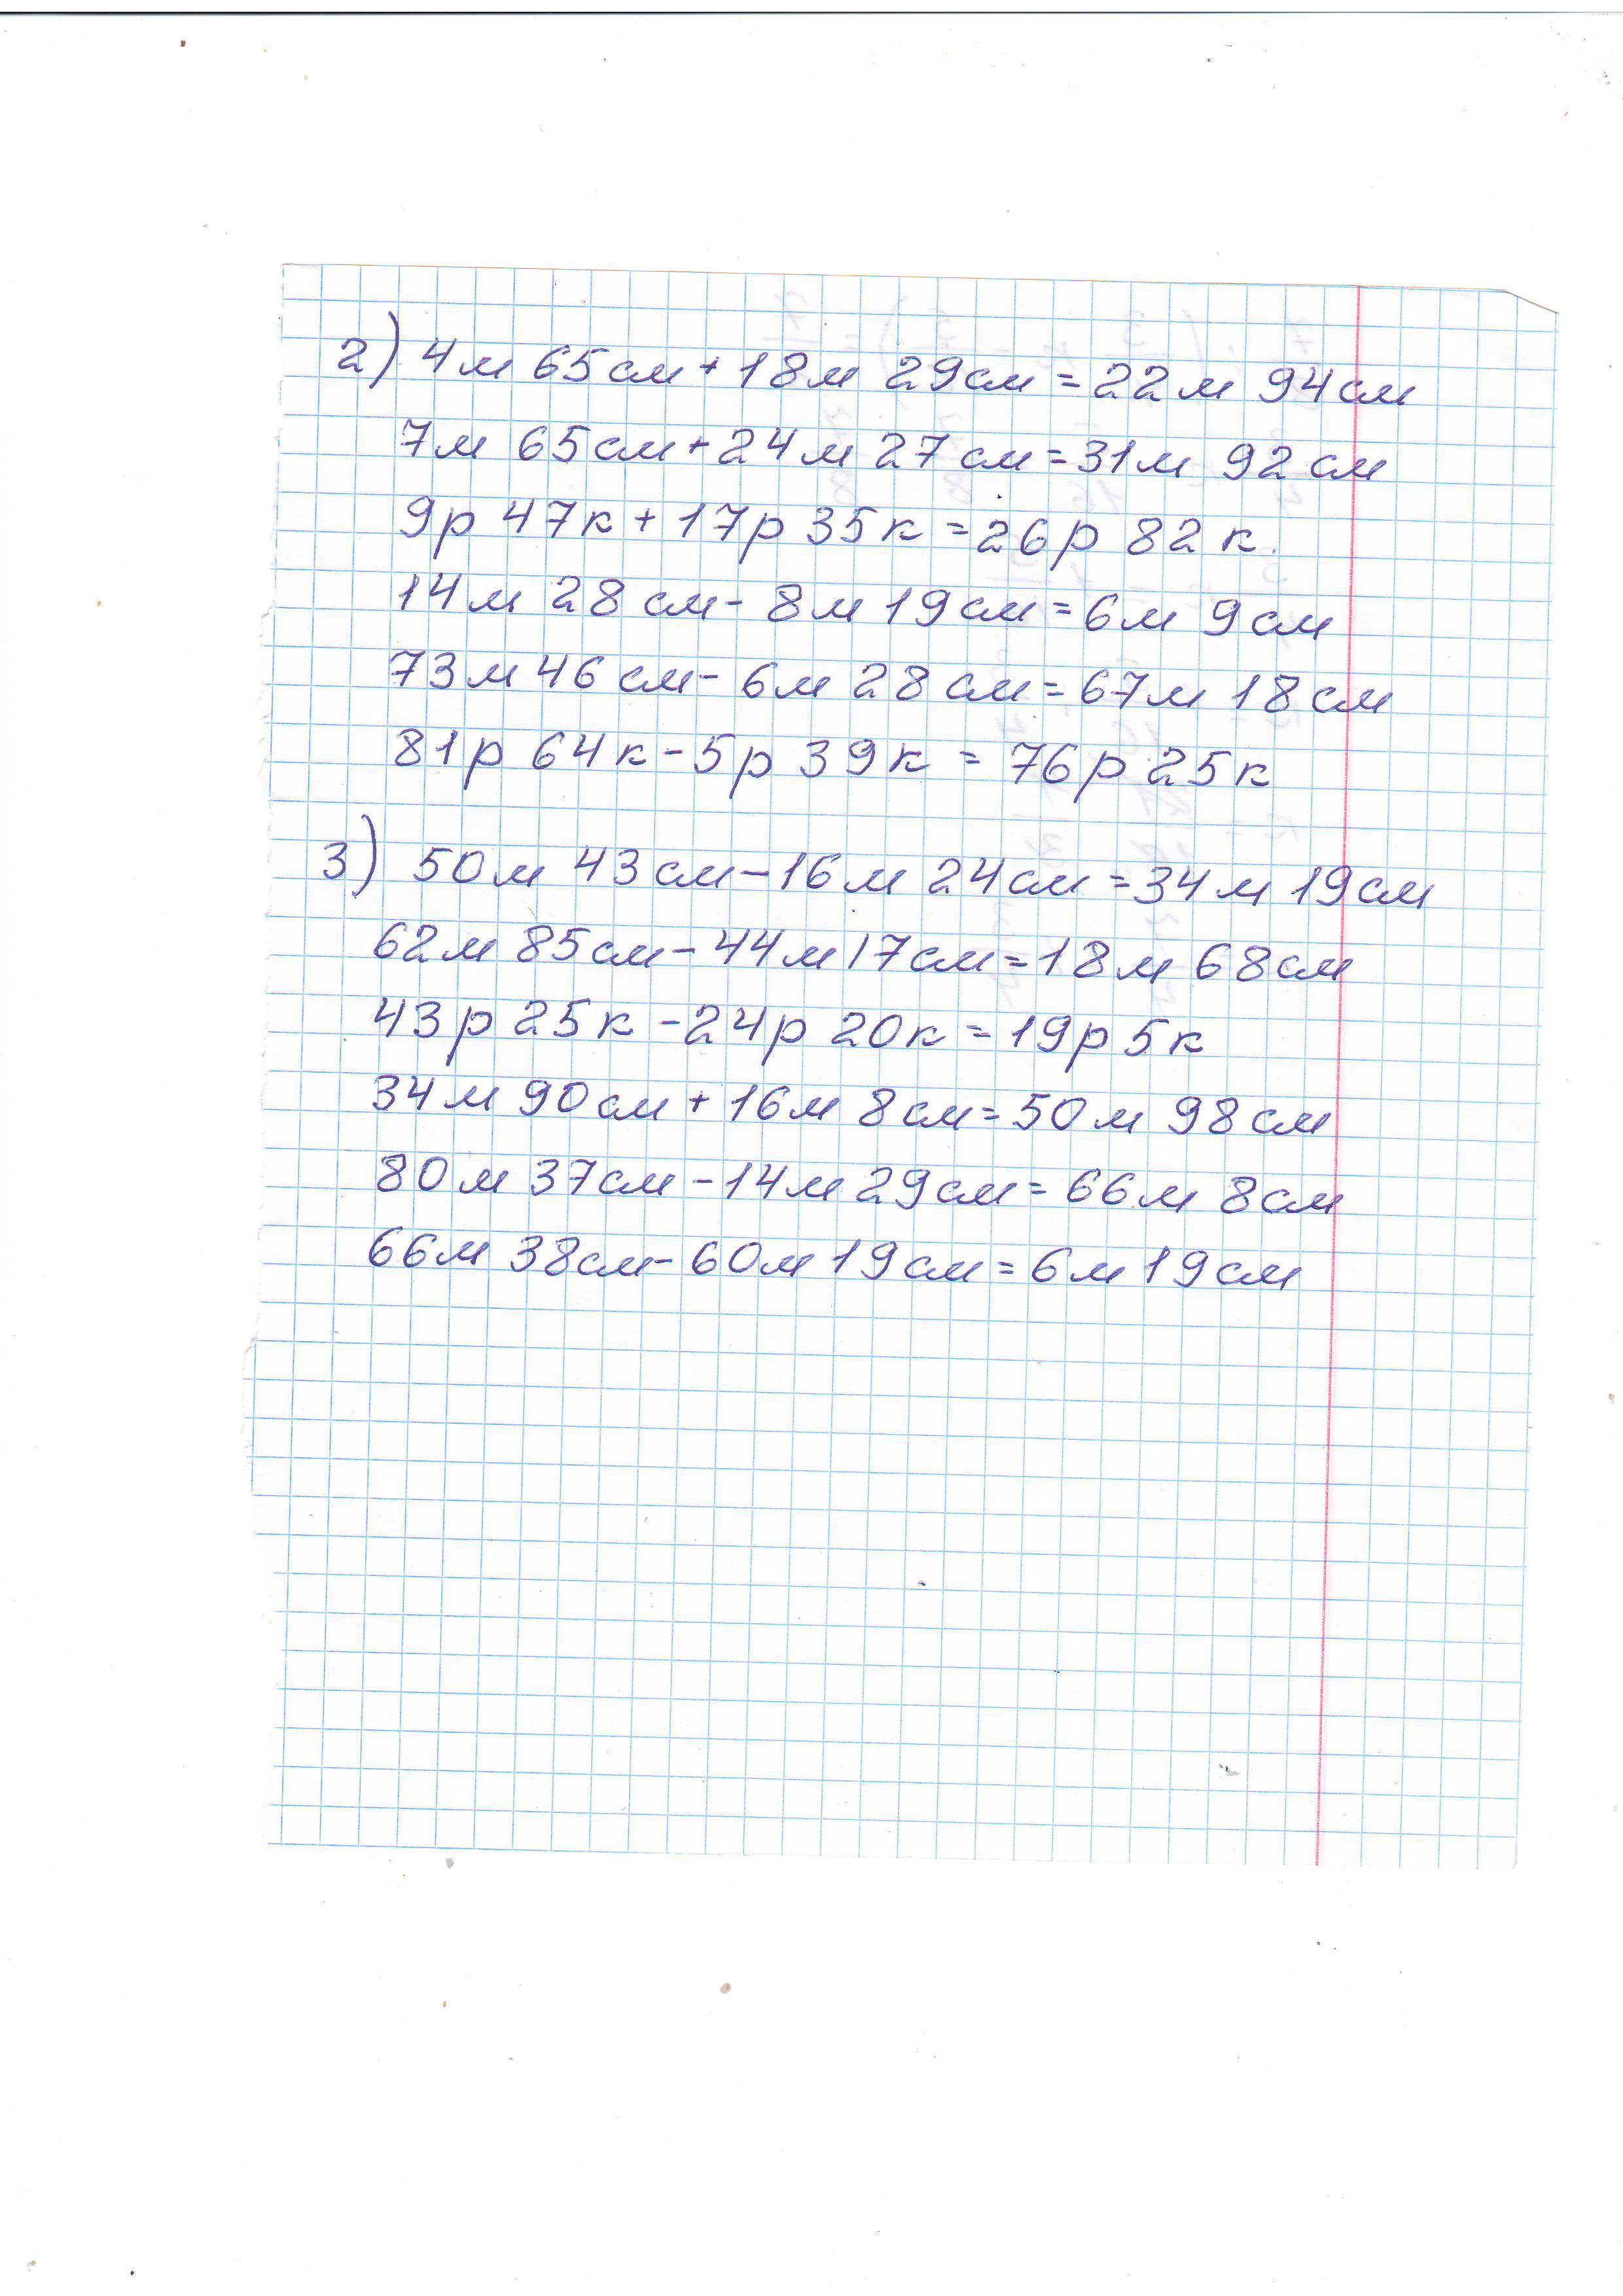 2) 4м 65см + 18м 29см = 22м 94см
7м 65см + 24м 27см = 31м 92см
9р 47к + 17р 35к = 26р 82к.
14м 28см - 8м 19см = 6м 9см
73м 46см - 6м 28см = 67м 18см
81р 64к - 5р 39к = 76р 25к
3) 50м 43см - 16м 24см = 34м 19см
62м 85см - 44м 17см = 18м 68см
43р 25к - 24р 20к = 19р 5к
34м 90см + 16м 8см = 50м 98см
80м 37см - 14м 29см = 66м 8см
66м 38см - 60м 19см = 6м 19см